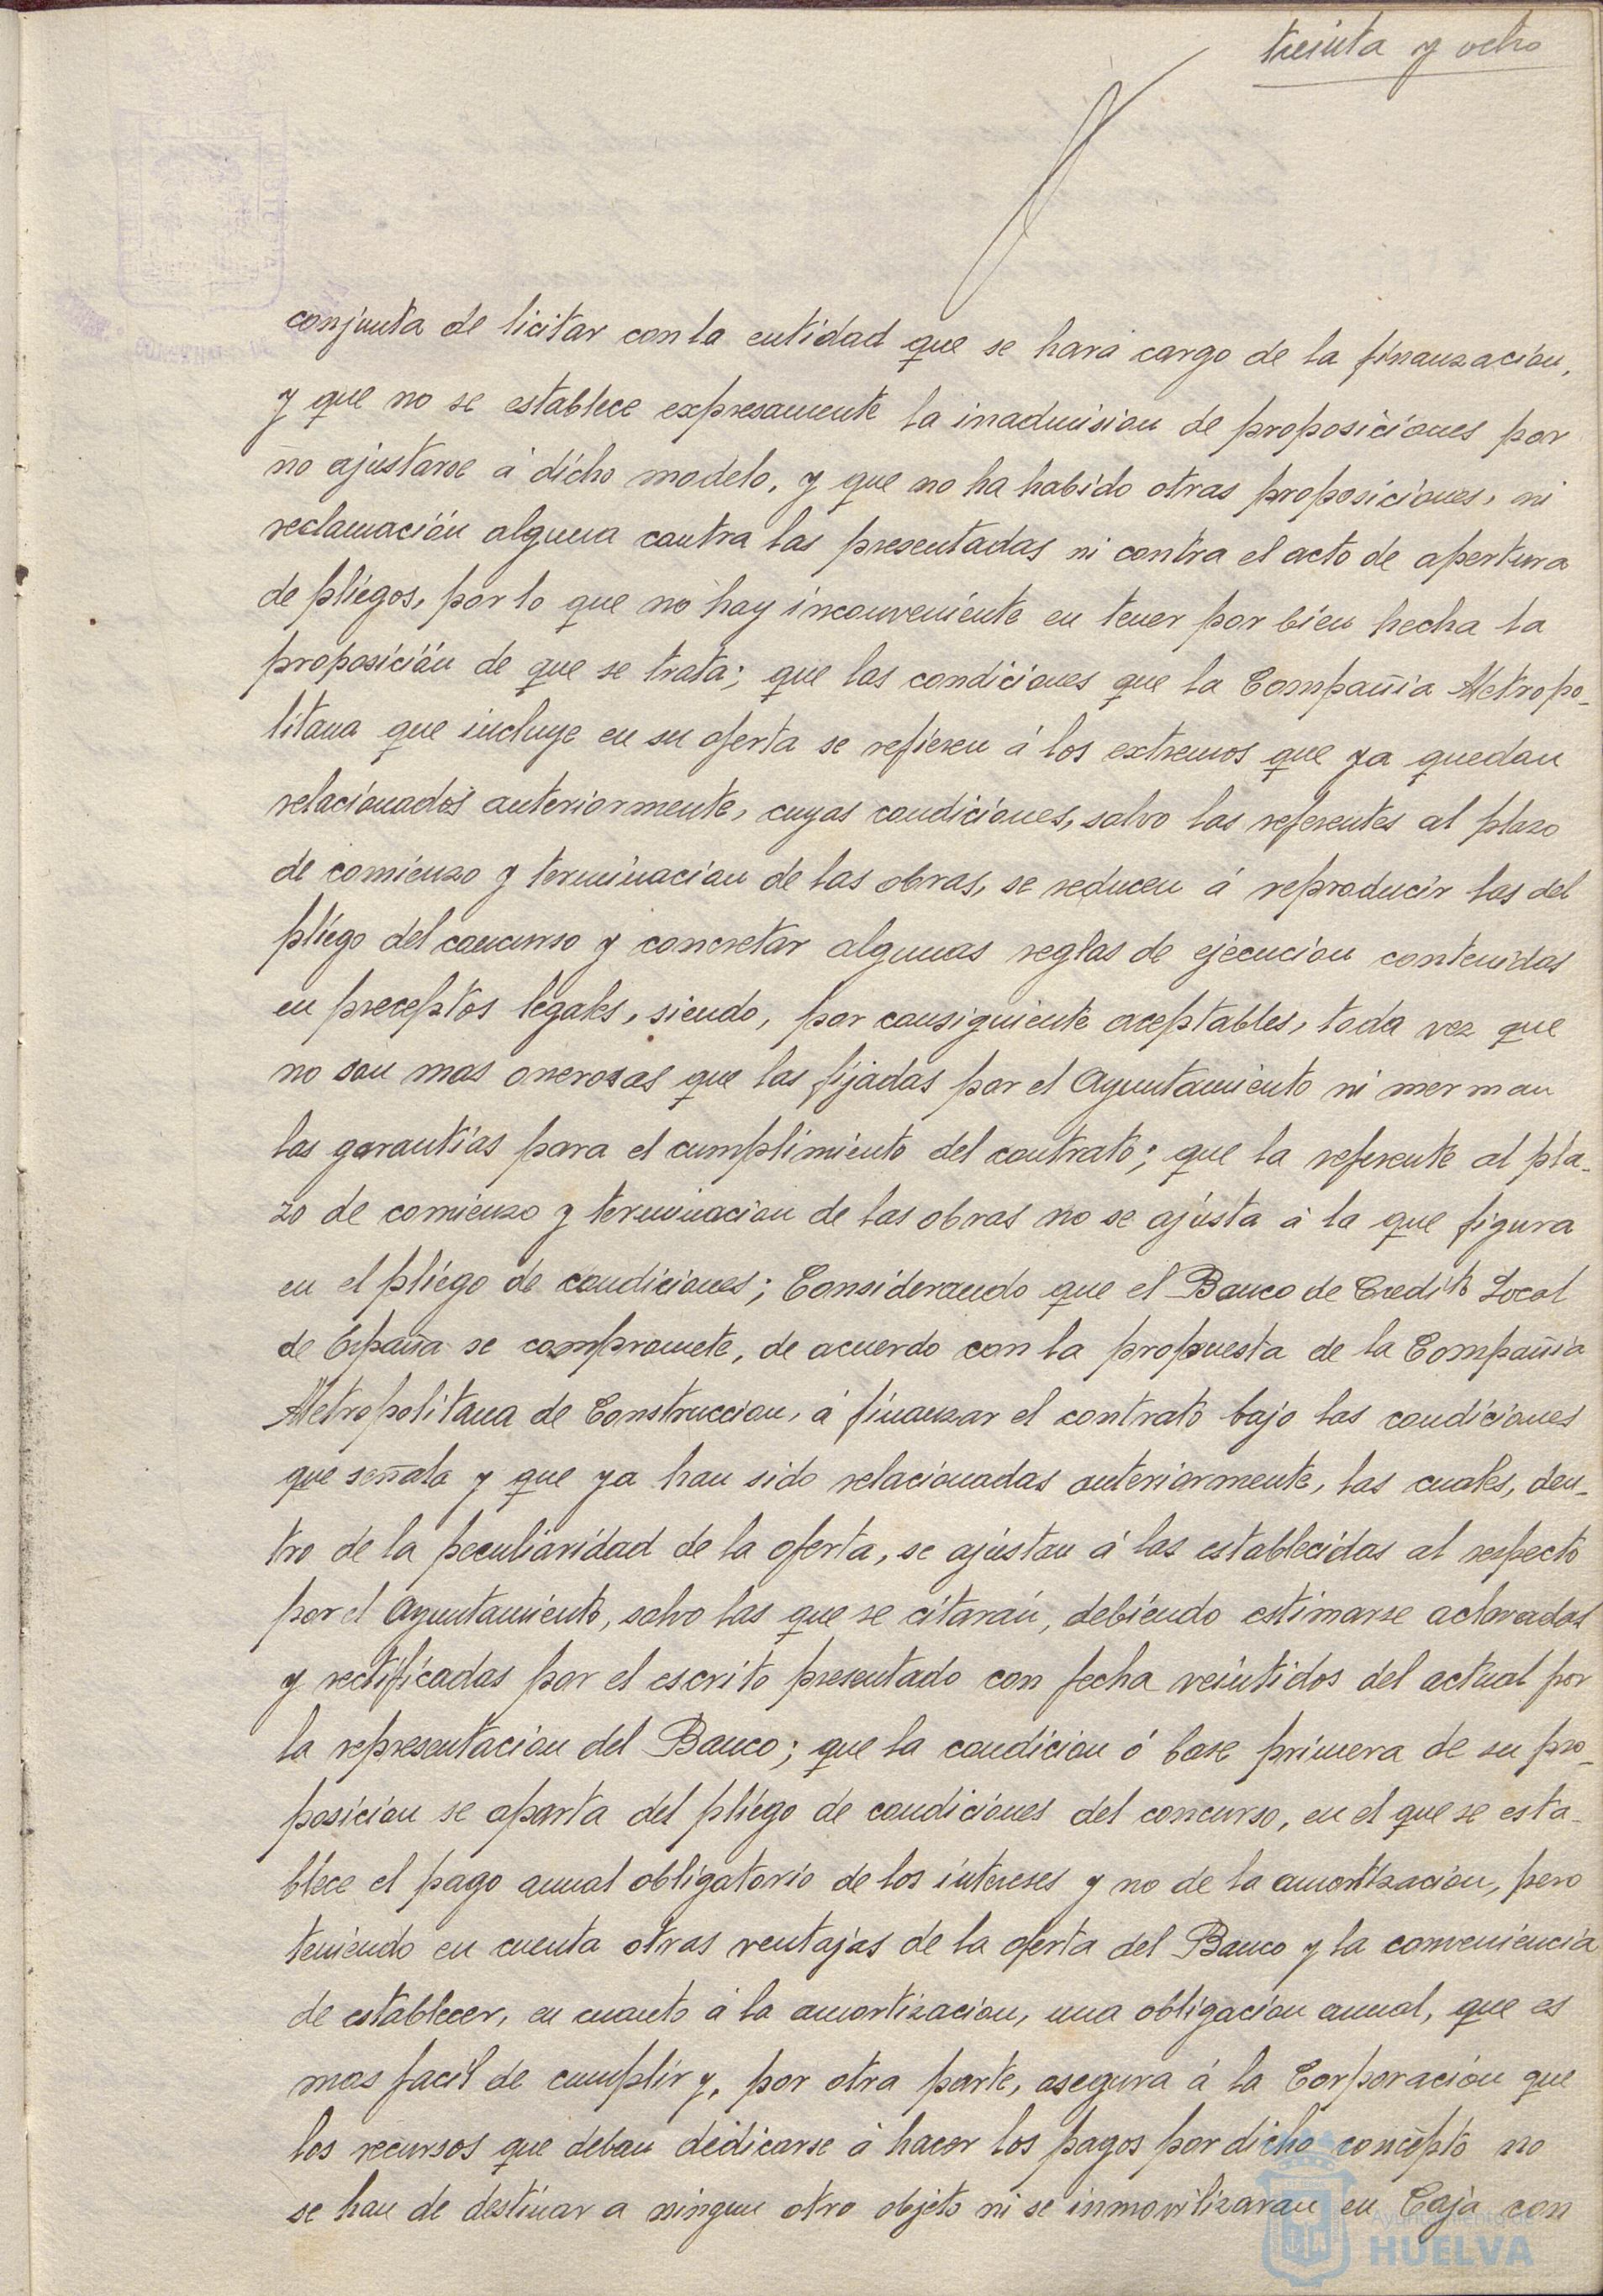 treinta y ocho
conjunta de licitar con la entidad que se hará cargo de la finanzacion,
y que no se establece expresamente la inadmision de proposiciones por
no ajustarse á dicho modelo, y que no ha habido otras proposiciones, ni
reclamación alguna contra las presentadas ni contra el acto de apertura
de pliegos, por lo que no hay inconveniente en tener por bien hecha la
proposición de que se trata; que las condiciones que la Compañia Metropo-
litana que incluye en su oferta se refieren á los extremos que ya quedan
relacionados anteriormente, cuyas condiciones, salvo las referentes al plazo
de comienzo y terminacion de las obras, se reducen á reproducir las del
pliego del concurso y concretar algunas reglas de ejecucion contenidas
en preceptos legales, siendo, por consiguiente aceptables, toda vez que
no son mas onerosas que las fijadas por el Ayuntamiento ni merman
las garantias para el cumplimiento del contrato; que la referente al pla-
zo de comienzo y terminacion de las obras no se ajusta á la que figura
en el pliego de condiciones; Considerando que el Banco de Credito Local
de España se compromete, de acuerdo con la propuesta de la Compañia
Metropolitana de Construccion, á finanzar el contrato bajo las condiciones
que señala y que ya han sido relacionadas anteriormente, las cuales, den-
tro de la peculiaridad de la oferta, se ajustan á las establecidas al respecto
por el Ayuntamiento, salvo las que se citarán, debiendo estimarse aclaradas
y rectificadas por el escrito presentado con fecha veintidos del actual por
la representacion del Banco; que la condicion ó base primera de su pro-
posicion se aparta del pliego de condiciones del concurso, en el que se esta-
blece el pago anual obligatorio de los intereses y no de la amortizacion, pero
teniendo en cuenta otras ventajas de la oferta del Banco y la conveniencia
de establecer, en cuanto á la amortizacion, una obligacion anual, que es
mas facil de cumplir y, por otra parte, asegura á la Corporación que
los recursos que deban dedicarse á hacer los pagos por dicho concepto no
se han de destinar a ningun otro objeto ni se inmovilizaran en Caja con
Ayuntamiento de
HUELVA